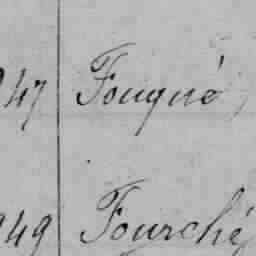 247 Fouqué
249 Fourché